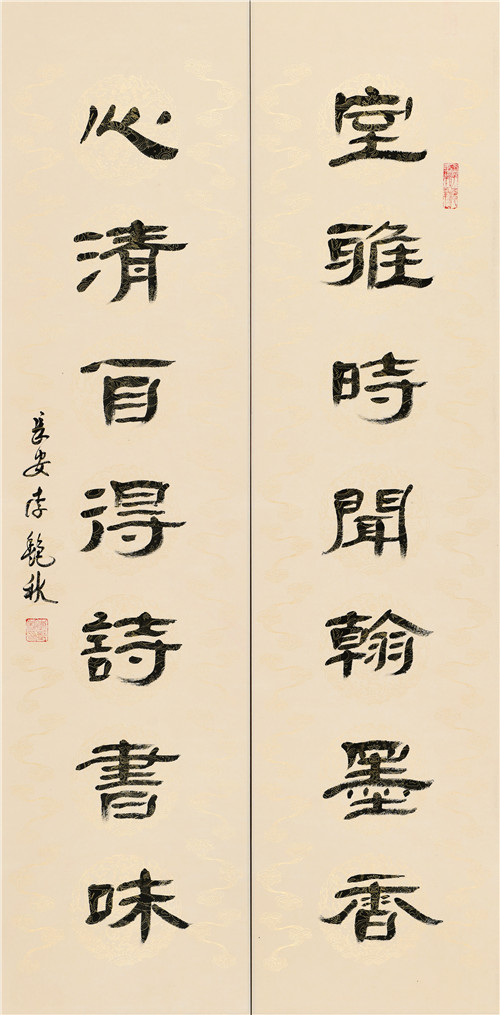 堂雅時聞翰墨香
心清自得詩書味
長安李艷秋